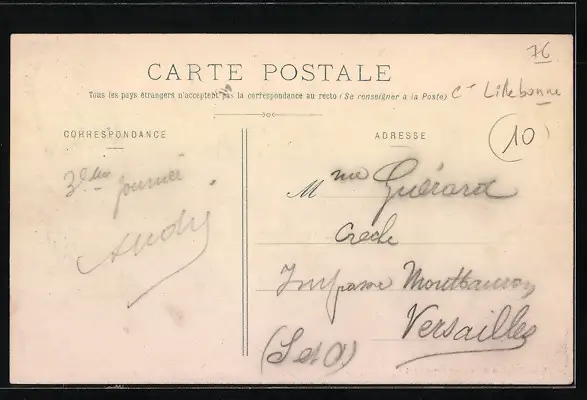 76
CARTE POSTALE
Tous les pays étrangers n'acceptent pas la correspondance au recto (Se renseigner à la Poste)
Cⁿ Lillebonne
(10)
CORRESPONDANCE
ADRESSE
3ème journée
André
Mme Guérard
Crèche
Impasse Montbauron
Versailles
(S et O)